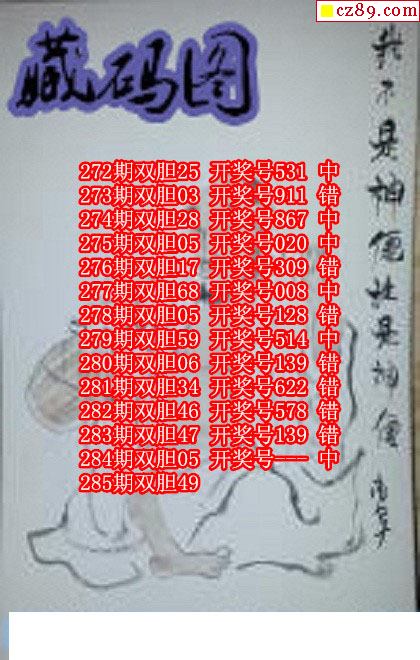 cz89.com
藏码图
272期双胆25 开奖号531 中
273期双胆03 开奖号911 错
274期双胆28 开奖号867 中
275期双胆05 开奖号020 中
276期双胆17 开奖号309 错
277期双胆68 开奖号008 中
278期双胆05 开奖号128 错
279期双胆59 开奖号514 中
280期双胆06 开奖号139 错
281期双胆34 开奖号622 错
282期双胆46 开奖号578 错
283期双胆47 开奖号139 错
284期双胆05 开奖号--- 中
285期双胆49
我不是神僧 是神僧